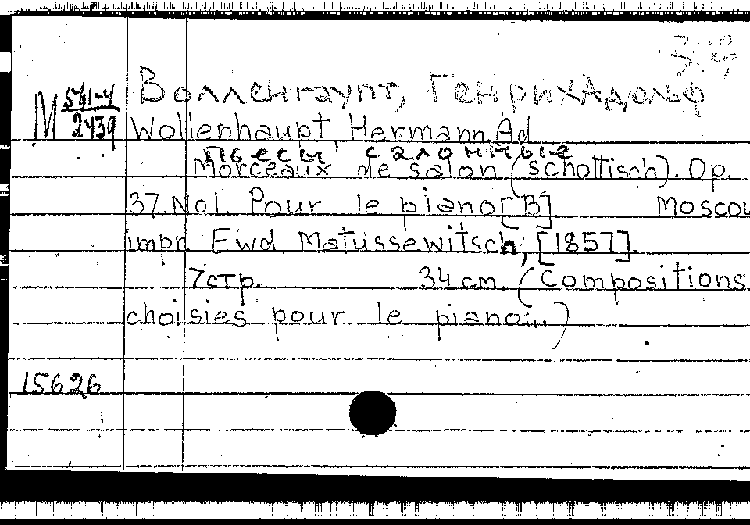 М 531-4
2439
Волленгаупт, Генрих Адольф
Wollenhaupt, Hermann Ad
Пьесы салонные
Morceaux de salon (Schottisch). Op.
37. No1. Pour le piano [B] Moscou
impr Ewd Matussewitsch, [1857].
7 стр. 34 см. (Compositions
choisies pour le piano...)
15626